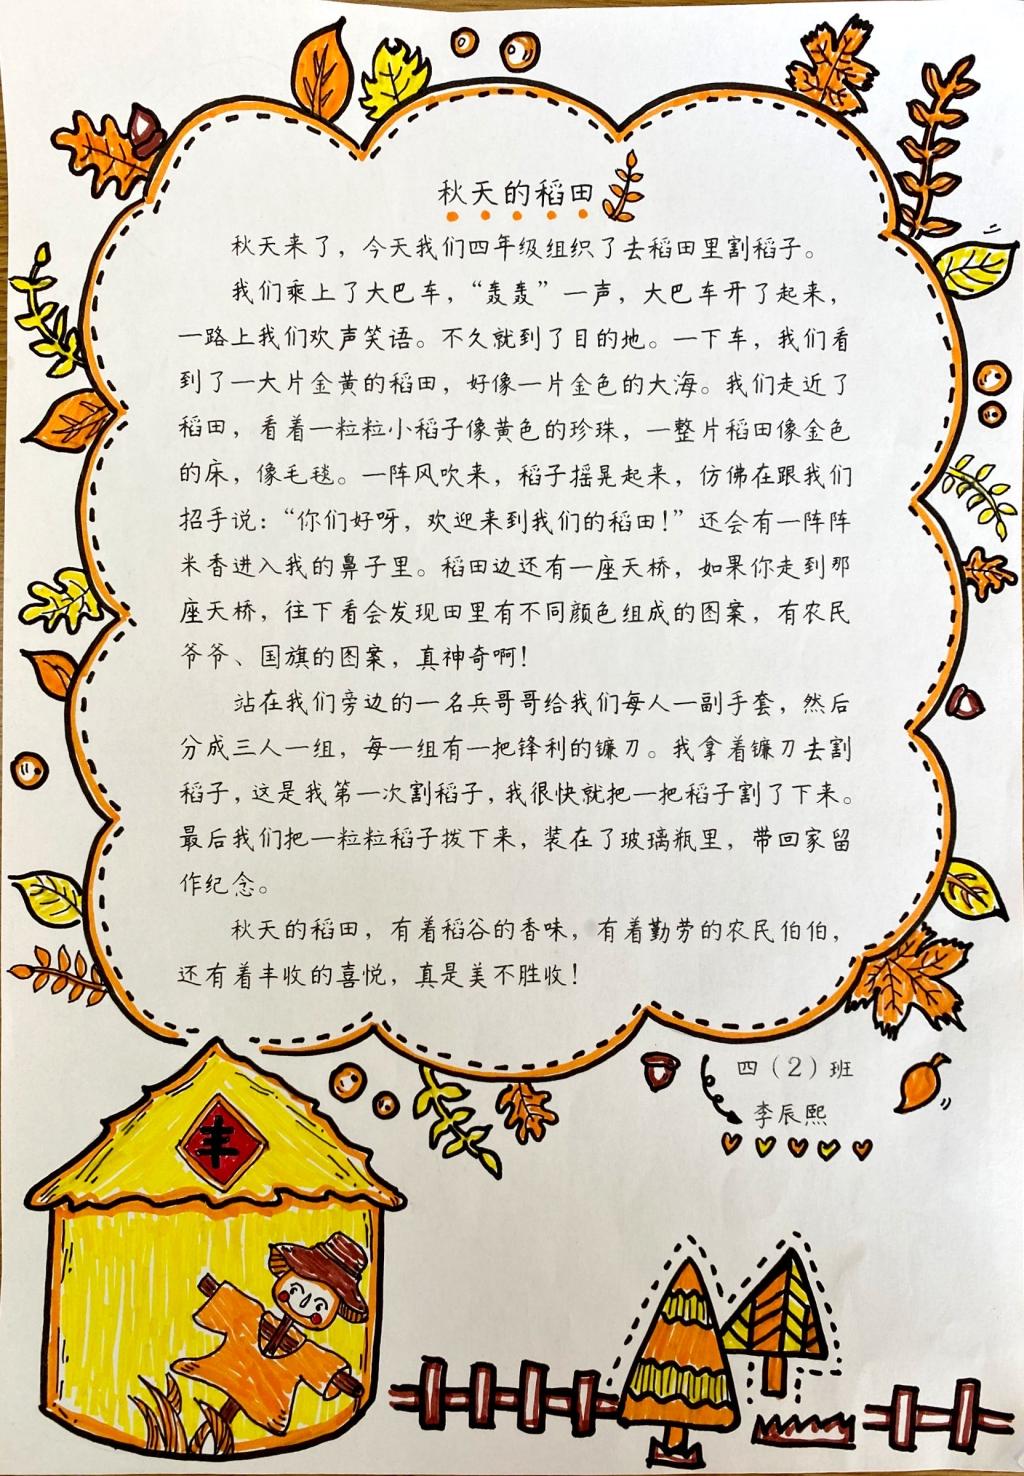 秋天的稻田
秋天来了，今天我们四年级组织了去稻田里割稻子。
我们乘上了大巴车，“轰轰”一声，大巴车开了起来，
一路上我们欢声笑语。不久就到了目的地。一下车，我们看
到了一大片金黄的稻田，好像一片金色的大海。我们走近了
稻田，看着一粒粒小稻子像黄色的珍珠，一整片稻田像金色
的床，像毛毯。一阵风吹来，稻子摇晃起来，仿佛在跟我们
招手说：“你们好呀，欢迎来到我们的稻田！”还会有一阵阵
米香进入我的鼻子里。稻田边还有一座天桥，如果你走到那
座天桥，往下看会发现田里有不同颜色组成的图案，有农民
爷爷、国旗的图案，真神奇啊！
站在我们旁边的一名兵哥哥给我们每人一副手套，然后
分成三人一组，每一组有一把锋利的镰刀。我拿着镰刀去割
稻子，这是我第一次割稻子，我很快就把一把稻子割了下来。
最后我们把一粒粒稻子拨下来，装在了玻璃瓶里，带回家留
作纪念。
秋天的稻田，有着稻谷的香味，有着勤劳的农民伯伯，
还有着丰收的喜悦，真是美不胜收！
四（2）班
李辰熙
丰